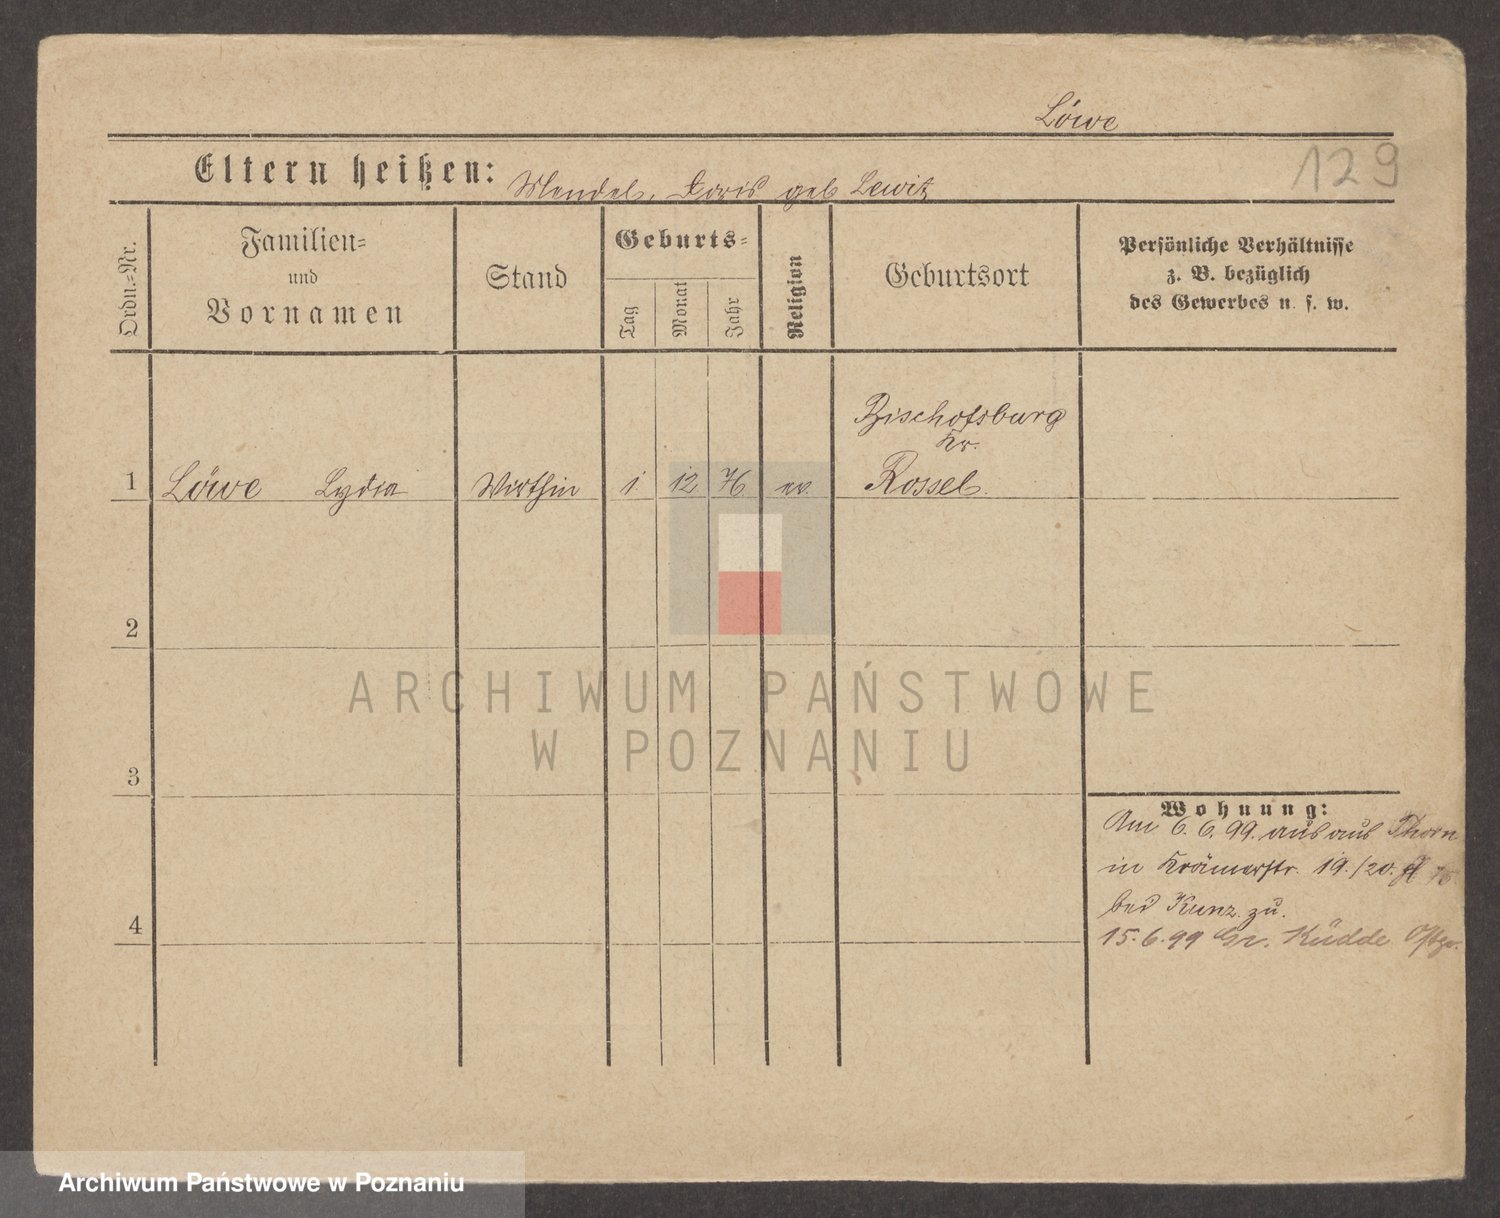 Löwe
129
Eltern heißen: Mendel, Doris geb Lewitz
Ordn.=Nr.
Familien=
und
Vornamen
Stand
Geburts=
Tag
Monat
Jahr
Religion
Geburtsort
Persönliche Verhältnisse
z. B. bezüglich
des Gewerbes u. s. w.
Bischofsburg
Kr.
1 Löwe Lydia Wirthin 1. 12 76 ev. Rossel.
2
ARCHIWUM PAŃSTWOWE
W POZNANIU
3
Wohnung:
Am 6. 6. 99. aus aus Thorn
in Krämerstr. 19./20.
bei Kunz zu.
4
15.6.99 Gr. Küdde
Archiwum Państwowe w Poznaniu